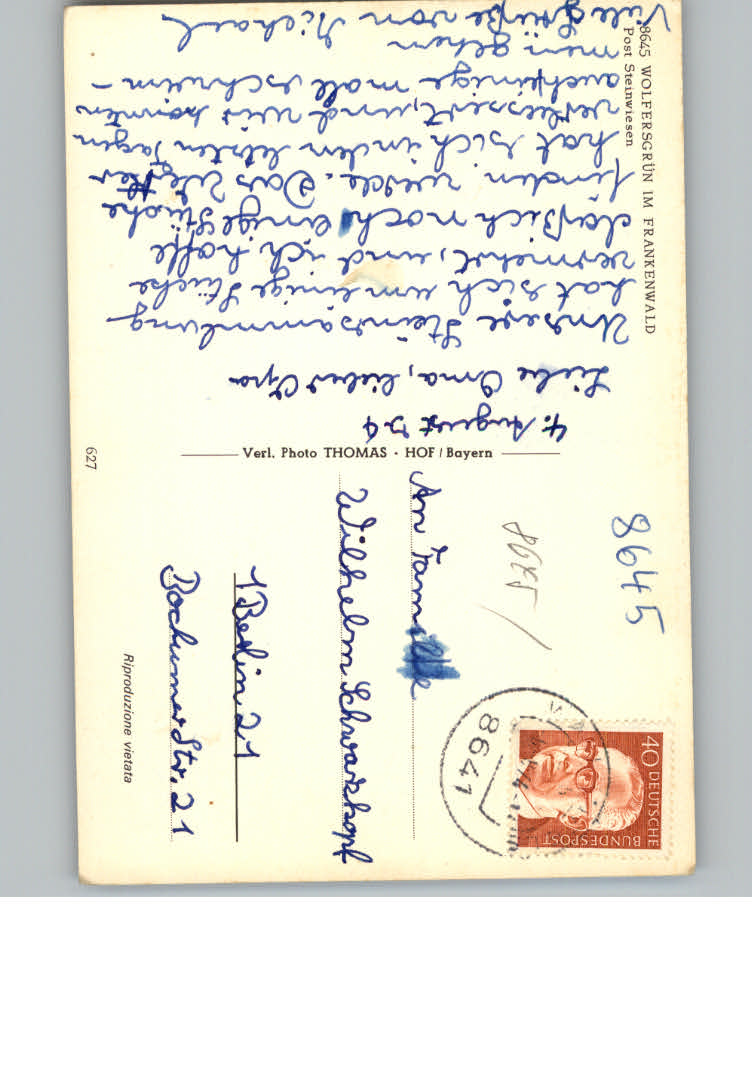 8645 WOLFERSGRÜN IM FRANKENWALD
Post Steinwiesen
4. August
Liebe Oma, lieber Opa
Unsere Steinsammlung
hat sich um einige Stücke
vermehrt, und ich hoffe
daß ich noch einige Stücke
finden werde. Das Wetter
hat sich in den letzten Tagen
verbessert, und wir konnten
auch einige male schwim-
men gehen
Viele Grüße von Michael
Verl. Photo THOMAS · HOF / Bayern
627
8645
8645 /
40 DEUTSCHE
BUNDESPOST
8641
An Familie
Wilhelm Schwarzkopf
1 Berlin 21
Bochumer Str. 21
Riproduzione vietata